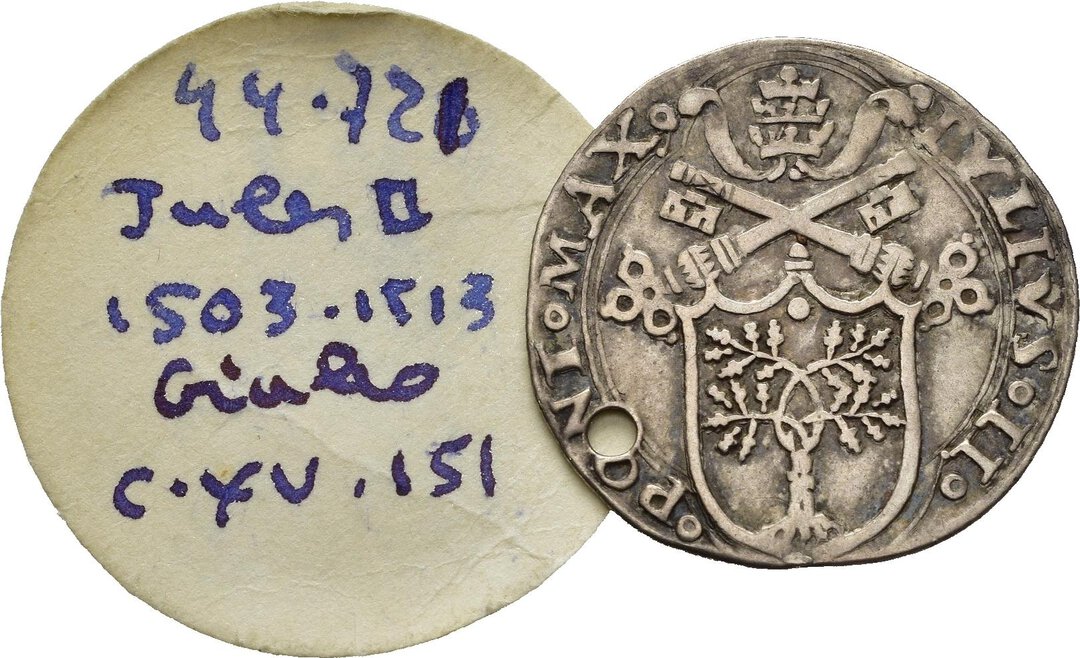 44.721
Jules II
1503.1513
Giulio
C.XV.151
IVLIVS·II· ·PONT·MAX·